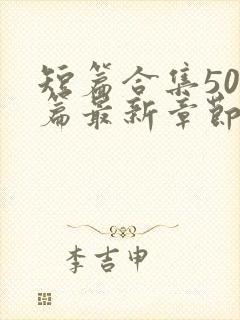 短篇合集50
篇最新章节
李吉申